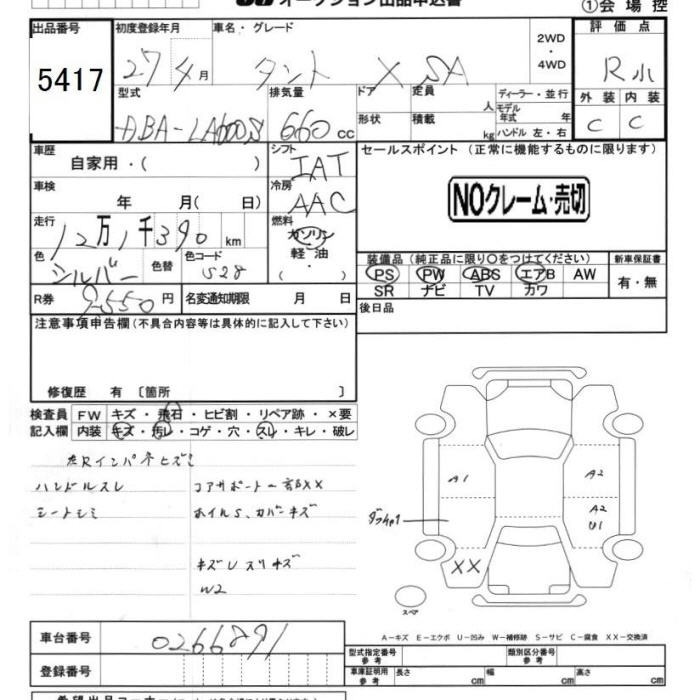 オークション出品申込書
①会場控
出品番号 初度登録年月 車名・グレード 2WD・4WD 評価点
5417 27年4月 タント X SA R小
型式 排気量 ドア 定員 人 ディーラー・並行 外装 内装
DBA-LA600S 660cc 形状 積載 kg モデル年式 年 ハンドル 左・右 C C
車歴 シフト セールスポイント(正常に機能するものに限ります)
自家用・( ) IAT
車検 冷房 NOクレーム・売切
年 月( 日) AAC
走行 12万1千390km 燃料
ガソリン
軽油
・( )
色 シルバー 色替 色コード S28
装備品(純正品に限り○をつけてください) 新車保証書
PS PW ABS エアB AW 有・無
SR ナビ TV カワ
R券 9550円 名変通知期限 月 日
後日品
注意事項申告欄(不具合内容等は具体的に記入して下さい)
修復歴 有 〔箇所 〕
検査員 FW キズ・飛石・ヒビ割・リペア跡・×要
記入欄 内装 キズ・汚レ・コゲ・穴・スレ・キレ・破レ
左Rインパネヒズミ
ハンドルスレ コアサポート一部XX
シートシミ ホイルS、カバーキズ
キズレスリキズ
W2
A1 A2
A2
U1
XX
スペア
A-キズ E-エクボ U-凹み W-補修跡 S-サビ C-腐食 XX-交換済
車台番号 0266891
型式指定番号 参考 類別区分番号 参考
登録番号
車庫証明用 参考 長さ cm 幅 cm 高さ cm